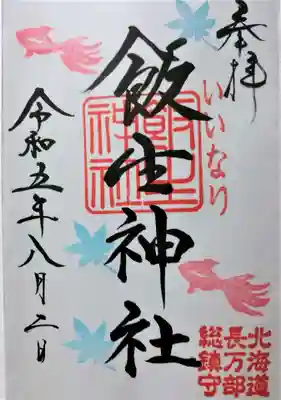 奉拝
いいなり
飯生神社
飯生神社
令和五年八月二日
北海道
長万部
総鎮守